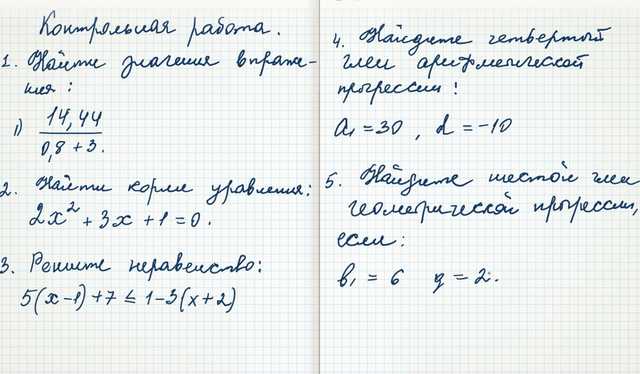 Контрольная работа.
1. Найти значения выраже-
ния:
1) 14,44
0,8 + 3.
2. Найти корни уравнения:
2x² + 3x + 1 = 0.
3. Решите неравенство:
5(x-1)+7 ≤ 1-3(x+2)
4. Найдите четвертый
член арифметической
прогрессии!
a₁ = 30, d = -10
5. Найдите шестой член
геометрической прогрессии,
если:
b₁ = 6 q = 2.